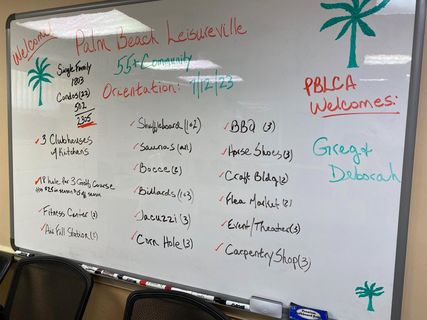 Welcome!
Palm Beach Leisureville
55+ Community
Orientation: 7/12/23
Single Family
1813
Condos (22)
502
2305
3 Clubhouses
& Kitchens
18 hole Par 3 Golf Course
Fitness Center (3)
Shuffleboard (1+2)
Saunas (all)
Bocce (2)
Billiards (1+3)
Jacuzzi (3)
Corn Hole (3)
BBQ (3)
Horse Shoes (3)
Craft Bldg (2)
Flea Market (2)
Event/Theater (3)
Carpentry Shop (3)
PBLCA
Welcomes:
Greg &
Deborah